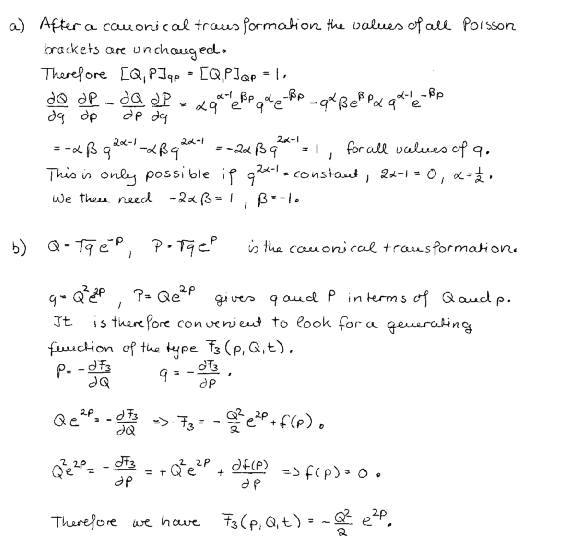 a) After a canonical transformation the values of all Poisson
brackets are unchanged.
Therefore [Q,P]qp = [Q,P]QP = 1.
∂Q/∂q ∂P/∂p - ∂Q/∂p ∂P/∂q = αq^(α-1) e^(βp) q^α e^(-βp) - q^α β e^(βp) α q^(α-1) e^(-βp)
= -αβ q^(2α-1) - αβ q^(2α-1) = -2αβ q^(2α-1) = 1, for all values of q.
This is only possible if q^(2α-1) = constant, 2α-1 = 0, α = 1/2.
We then need -2αβ = 1, β = -1.
b) Q = √q e^(-p), P = √q e^p is the canonical transformation.
q = Q² e^(2p), P = Q e^(2p) gives q and P in terms of Q and p.
It is therefore convenient to look for a generating
function of the type F₃(p,Q,t).
P = -∂F₃/∂Q q = -∂F₃/∂p.
Q e^(2p) = -∂F₃/∂Q => F₃ = -Q²/2 e^(2p) + f(p).
Q² e^(2p) = -∂F₃/∂p = + Q² e^(2p) + ∂f(p)/∂p => f(p) = 0.
Therefore we have F₃(p,Q,t) = -Q²/2 e^(2p).